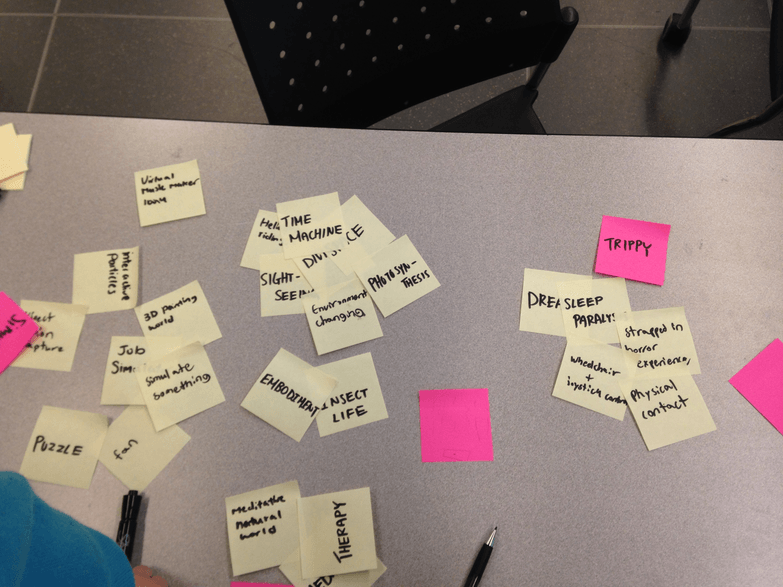 Virtual
Music Maker
Interactive
Particles
3D painting
world
Job
simulate
something
PUZZLE
fan
TIME
MACHINE
SIGHT-
SEEIN
Environment
changing
PHOTOSYN-
THESIS
EMBODIMENT
INSECT
LIFE
Meditative
natural
world
THERAPY
TRIPPY
SLEEP
PARALYS
Strapped in
horror
experience,
wheelchair
+
joystick
Physical
contact